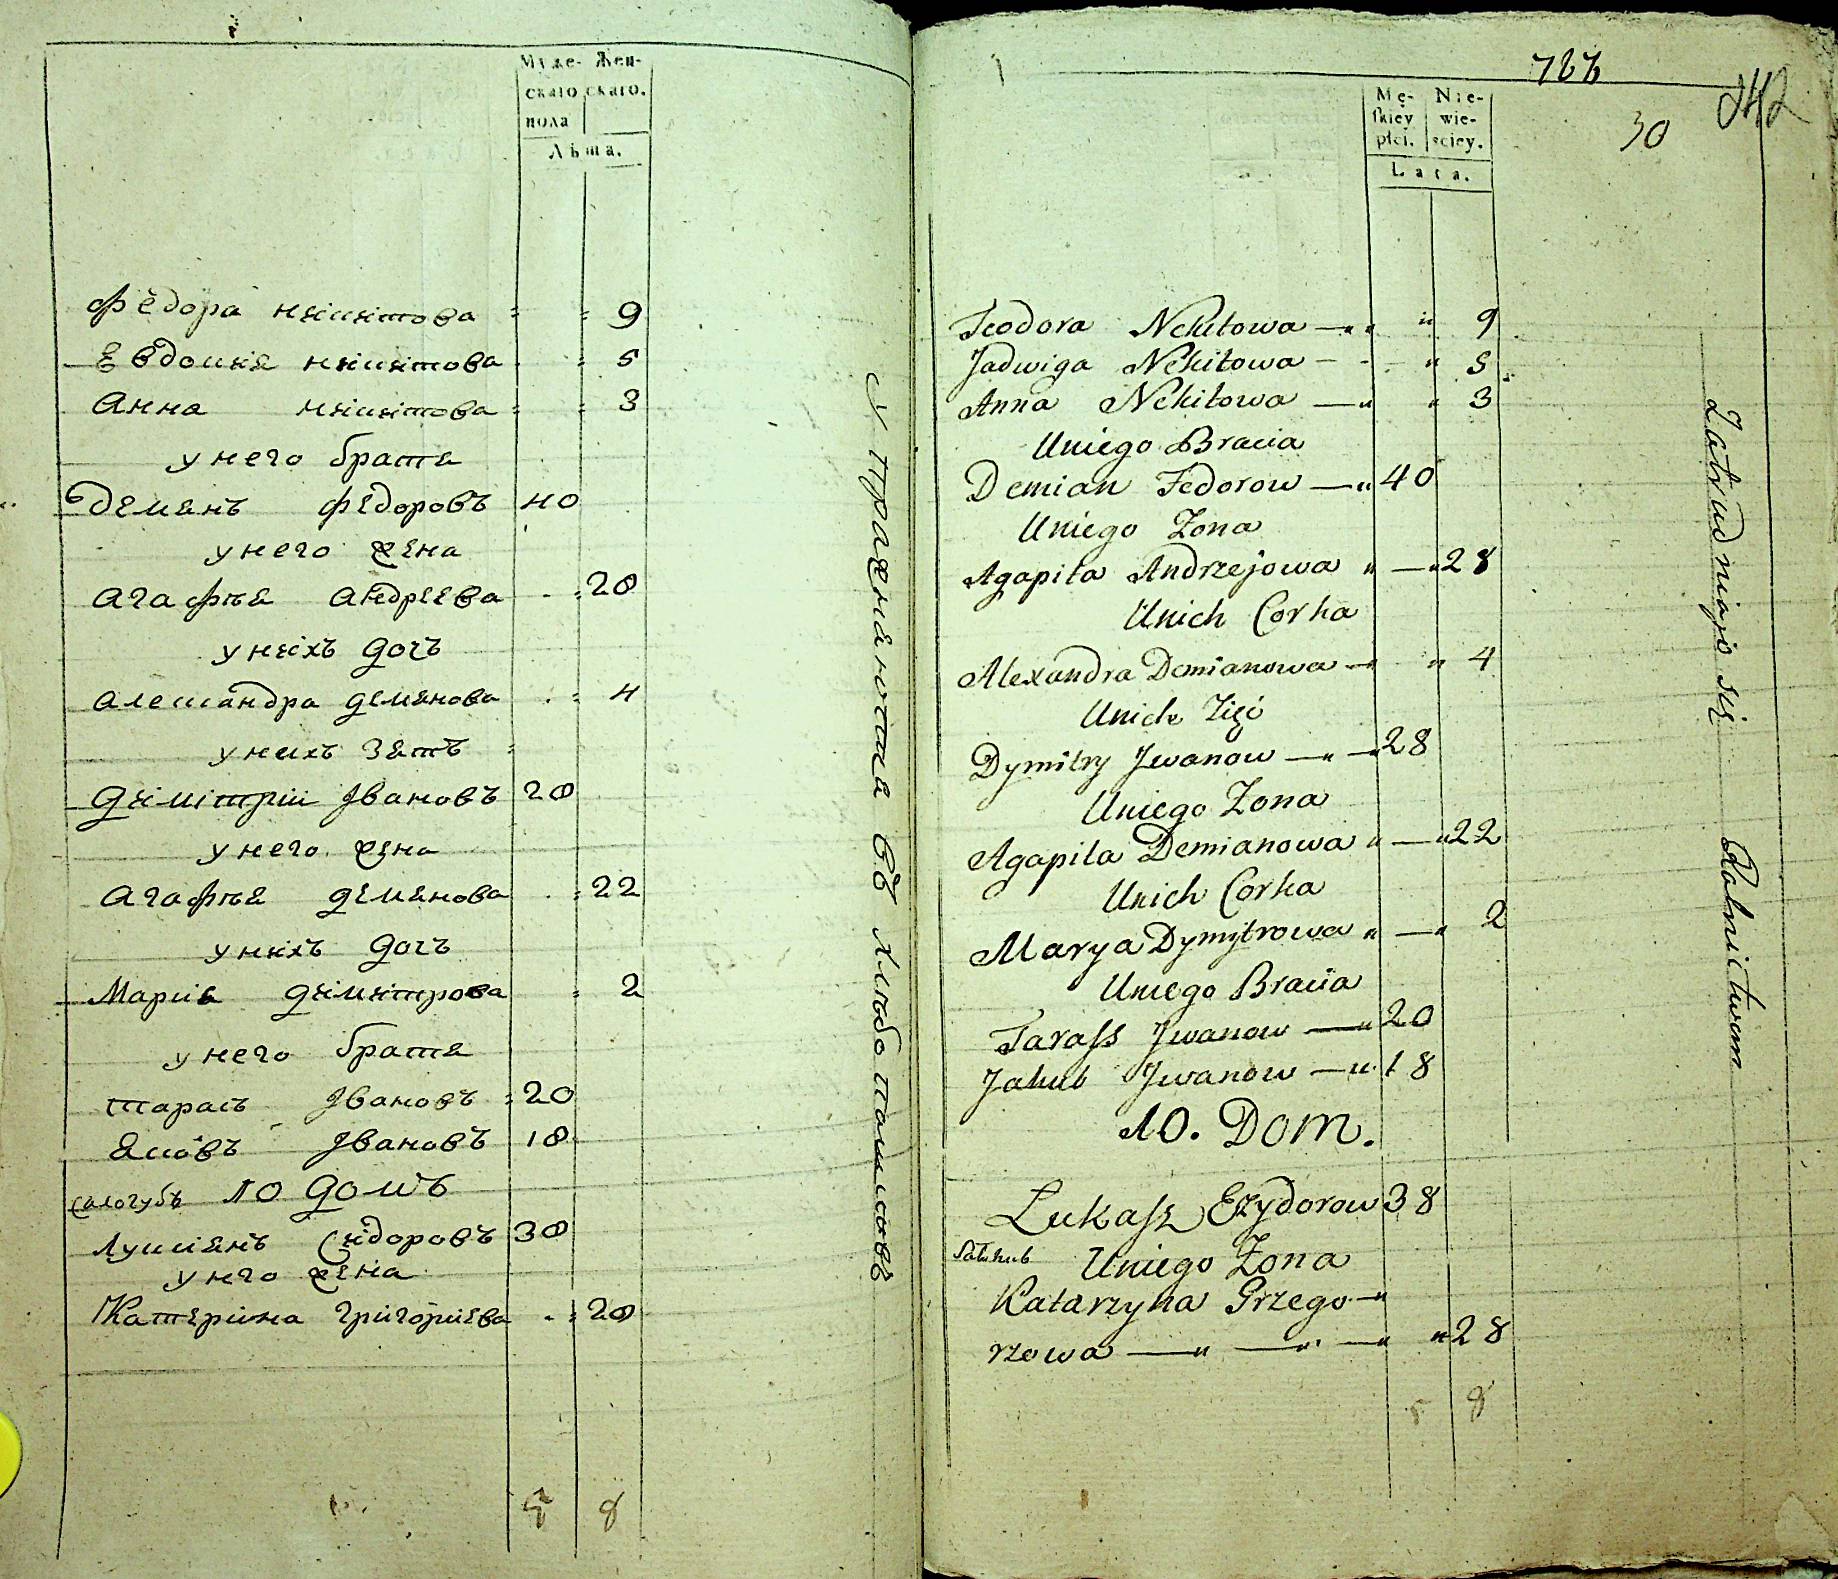 Муже- Жен-
скаго скаго.
пола
Лѣта.
Федора никитова 9
Евдокия никитова 5
Анна никитова 3
у него братя
Демянъ Федоровъ 40
у него жена
Агафья Андреева 28
у нихъ дочъ
Александра демянова 4
у нихъ зятъ
Димитрий Ивановъ 28
у него жена
Агафья демянова 22
у нихъ дочъ
Мария димитрова 2
у него братя
Тарасъ Ивановъ 20
Яковъ Ивановъ 18
10 домъ
салогубъ
Лукиянъ Сидоровъ 38
у нго жена
Катерина григориева 28
5 8
Упражняются въ хлѣбопашсовѣ
787
342
30
Mę- Nie-
skiey wie-
płci. sciey.
Lata.
Teodora Nekitowa 9
Jadwiga Nekitowa 5
Anna Nekitowa 3
Uniego Bracia
Demian Fedorow 40
Uniego Zona
Agapita Andrzejowa 28
Unich Corka
Alexandra Demianowa 4
Unich Zięć
Dymitry Jwanow 28
Uniego Zona
Agapita Demianowa 22
Unich Corka
Marya Dymytrowa 2
Uniego Bracia
Tarass Jwanow 20
Jakub Jwanow 18
10. Dom.
Lukasz Ezydorow 38
Uniego Zona
Katarzyna Grzego
rzowa 28
5 8
Zatrudniaią się Rolnictwem